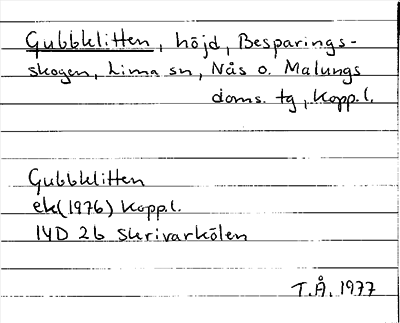 Gubbklitten, höjd, Besparings-
skogen, Lima sn, Nås o. Malungs
doms. tg, Kopp.l.
Gubbklitten
ek(1976) Kopp.l.
14D 2b Skrivarkölen
T.Å. 1977